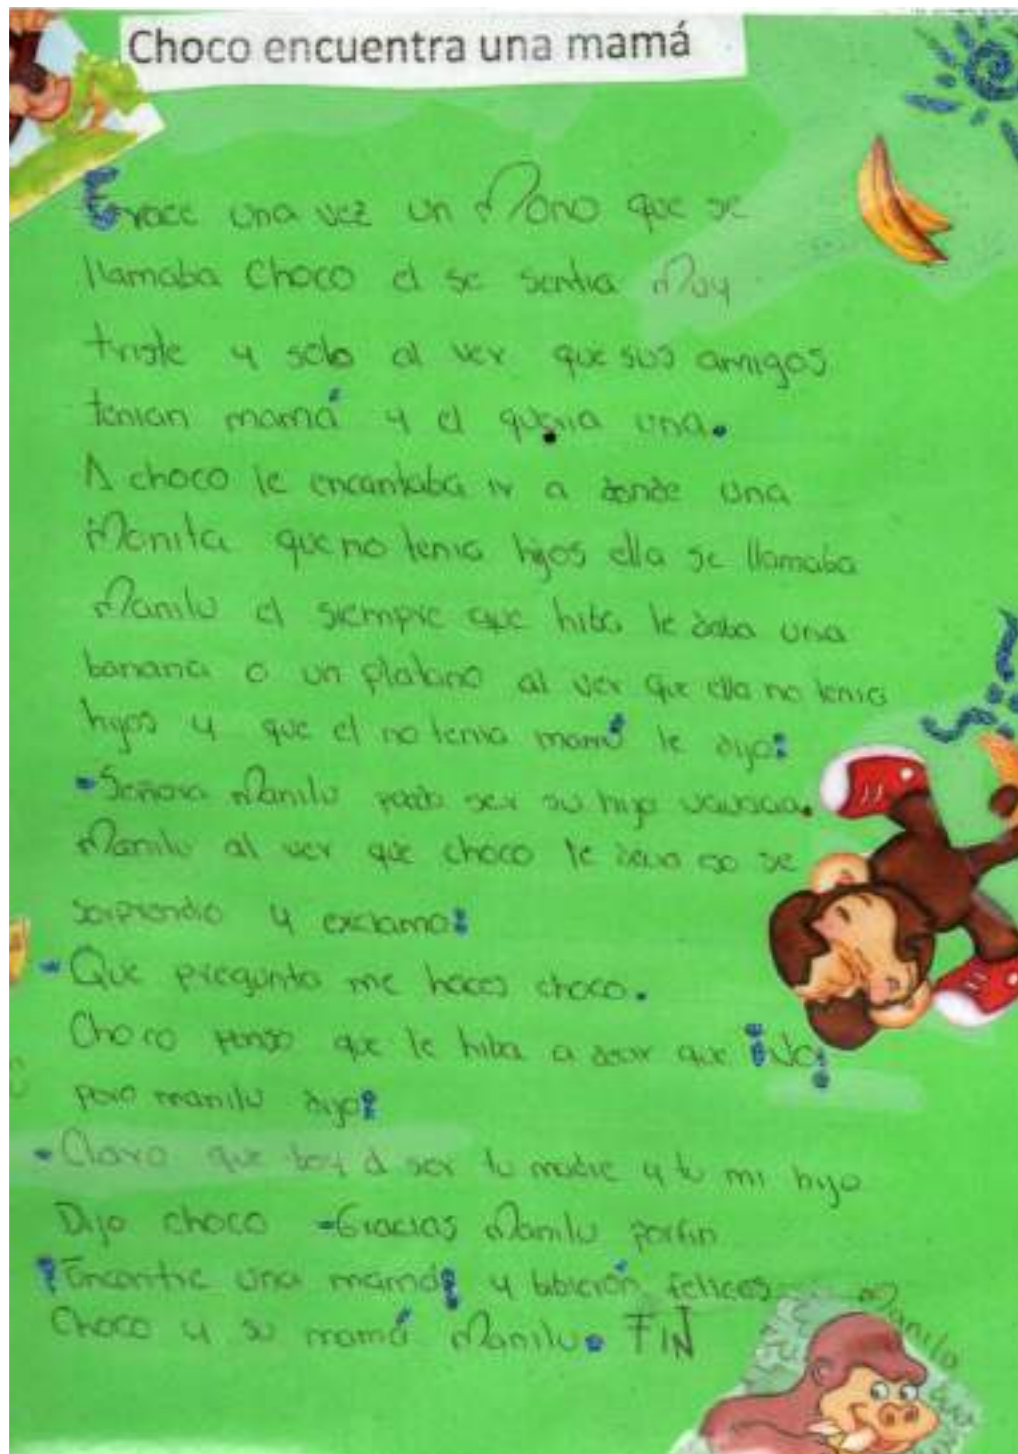 Choco encuentra una mamá
una vez un Mono que se
llamaba Choco el se sentia Muy
triste y solo al ver que sus amigos
tenian mamá y el queria una.
A choco le encantaba ir a donde una
Monita que no tenia hijos ella se llamaba
Manilu el siempre que hiba le daba una
banana o un platano al ver que ella no tenia
hijos y que el no tenia mamá le dijo:
-Señora Manilu ser su hijo
Manilu al ver que choco le eso se
sorprendio y exclamo:
-Que pregunta me haces choco.
Choco penso que le hiba a decir que ¡No!
pero manilu dijo:
-Claro que boy a ser tu madre y tu mi hijo
Dijo choco -Gracias Manilu porfin
¡Encontre una mamá! y felices
Choco y su mamá Manilu. FIN
Manilu